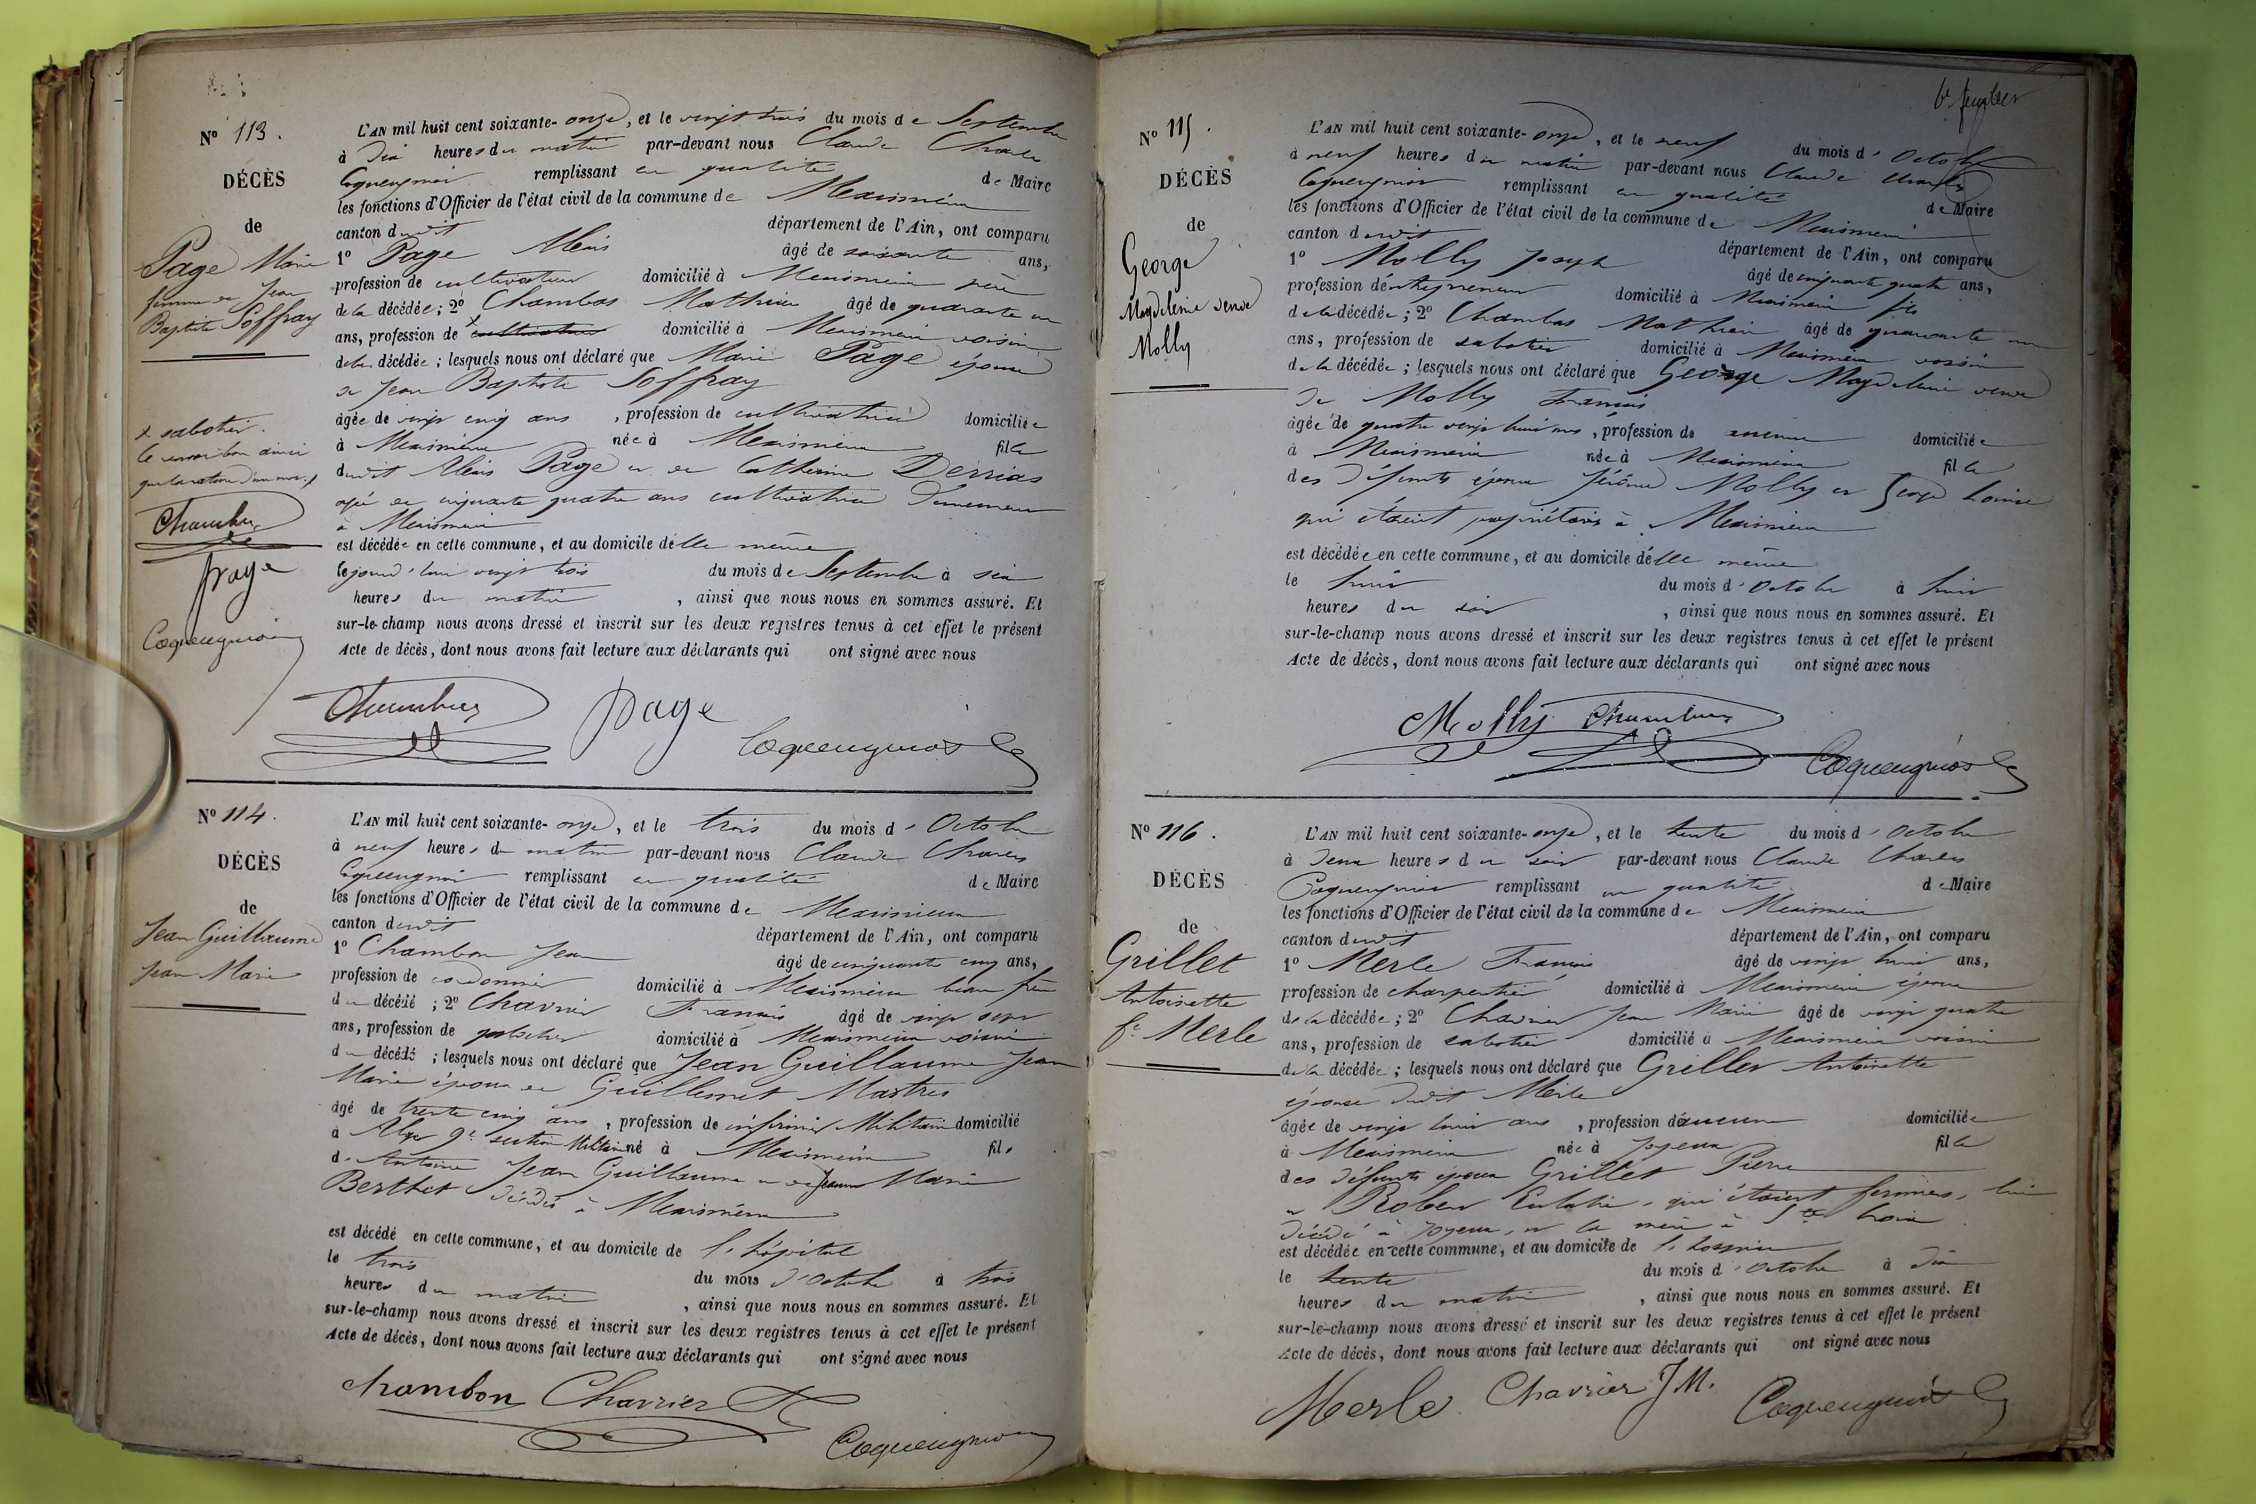 N° 113.
DÉCÈS
de
Page Marie
femme de Jean
Baptiste Soffray
x sabotier.
Chambas
Page
Coquengniot
L'AN mil huit cent soixante-onze, et le vingt trois du mois de Septembre
à dix heures du matin par-devant nous Claude Charles
Coquengniot remplissant en qualité de Maire
les fonctions d'Officier de l'état civil de la commune de Meximieux
canton dudit département de l'Ain, ont comparu
1° Page Alexis âgé de soixante ans,
profession de cultivateur domicilié à Meximieux père
de la décédée; 2° Chambas Mathieu âgé de quarante un
ans, profession de x cultivateur domicilié à Meximieux voisin
de la décédée; lesquels nous ont déclaré que Marie Page épouse
de Jean Baptiste Soffray
âgée de vingt cinq ans, profession de cultivatrice domiciliée
à Meximieux née à Meximieux fille
dudit Alexis Page et de Catherine Derrias
agée de cinquante quatre ans cultivatrice demeurant
à Meximieux
est décédée en cette commune, et au domicile d'elle même
le jourd'hui vingt trois du mois de Septembre à six
heures du matin, ainsi que nous nous en sommes assuré. Et
sur-le-champ nous avons dressé et inscrit sur les deux registres tenus à cet effet le présent
Acte de décès, dont nous avons fait lecture aux déclarants qui ont signé avec nous
Chambas page Coquengniot
N° 114.
DÉCÈS
de
Jean Guillaume
Jean Marie
L'AN mil huit cent soixante-onze, et le trois du mois d'Octobre
à neuf heures du matin par-devant nous Claude Charles
Coquengniot remplissant en qualité de Maire
les fonctions d'Officier de l'état civil de la commune de Meximieux
canton dudit département de l'Ain, ont comparu
1° Chambon Jean âgé de cinquante cinq ans,
profession de cordonnier domicilié à Meximieux beau frère
du décédé; 2° Chavrier François âgé de vingt sept
ans, profession de domicilié à Meximieux voisin
du décédé; lesquels nous ont déclaré que Jean Guillaume Jean
Marie époux de Guillemet
âgé de trente cinq ans, profession de infirmier Militaire domicilié
à Alger 9e section Militaire né à Meximieux fils
d'Antoine Jean Guillaume et de Jeanne Marie
Berthet décédés à Meximieux
est décédé en cette commune, et au domicile de l'hôpital
le trois du mois d'Octobre à trois
heures du matin, ainsi que nous nous en sommes assuré. Et
sur-le-champ nous avons dressé et inscrit sur les deux registres tenus à cet effet le présent
Acte de décès, dont nous avons fait lecture aux déclarants qui ont signé avec nous
chambon Chavrier Coquengniot
6e feuillet
N° 115.
DÉCÈS
de
George
Magdeleine veuve
Molly
L'AN mil huit cent soixante-onze, et le neuf du mois d'Octobre
à neuf heures du matin par-devant nous Claude Charles
Coquengniot remplissant en qualité de Maire
les fonctions d'Officier de l'état civil de la commune de Meximieux
canton dudit département de l'Ain, ont comparu
1° Molly Joseph âgé de cinquante quatre ans,
profession d'entrepreneur domicilié à Meximieux fils
de la décédée; 2° Chambas Mathieu âgé de quarante un
ans, profession de sabotier domicilié à Meximieux voisin
de la décédée; lesquels nous ont déclaré que George Magdeleine veuve
de Molly François
âgée de quatre vingt huit ans, profession de aucune domiciliée
à Meximieux née à Meximieux fille
des défunts époux Jérôme Molly et George Louise
qui étaient propriétaires à Meximieux
est décédée en cette commune, et au domicile d'elle même
le huit du mois d'Octobre à huit
heures du soir, ainsi que nous nous en sommes assuré. Et
sur-le-champ nous avons dressé et inscrit sur les deux registres tenus à cet effet le présent
Acte de décès, dont nous avons fait lecture aux déclarants qui ont signé avec nous
Molly Chambas Coquengniot
N° 116.
DÉCÈS
de
Grillet
Antoinette
fe Merle
L'AN mil huit cent soixante-onze, et le trente du mois d'Octobre
à deux heures du soir par-devant nous Claude Charles
Coquengniot remplissant en qualité de Maire
les fonctions d'Officier de l'état civil de la commune de Meximieux
canton dudit département de l'Ain, ont comparu
1° Merle François âgé de vingt huit ans,
profession de charpentier domicilié à Meximieux époux
de la décédée; 2° Chavrier Jean Marie âgé de vingt quatre
ans, profession de sabotier domicilié à Meximieux voisin
de la décédée; lesquels nous ont déclaré que Grillet Antoinette
épouse dudit Merle
âgée de vingt huit ans, profession d'aucune domiciliée
à Meximieux née à Joyeux fille
des défunts époux Grillet Pierre
et Robert Eulalie, qui étaient fermiers, lui
décédé à Joyeux, et la mère à Ste Croix
est décédée en cette commune, et au domicile de l'hospice
le trente du mois d'Octobre à dix
heures du matin, ainsi que nous nous en sommes assuré. Et
sur-le-champ nous avons dressé et inscrit sur les deux registres tenus à cet effet le présent
Acte de décès, dont nous avons fait lecture aux déclarants qui ont signé avec nous
Merle Chavrier J M. Coquengniot